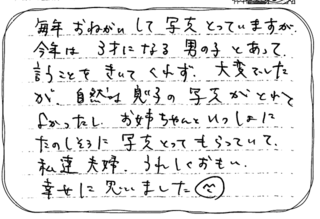 毎年おねがいして写真とっていますが、
今年は3才になる男の子とあって、
言うことをきいてくれず、大変でした
が、自然な息子の写真がとれて
よかったし、お姉ちゃんといっしょに
たのしそうに写真とってもらっていて、
私達夫婦、うれしくおもい、
幸せに思いました